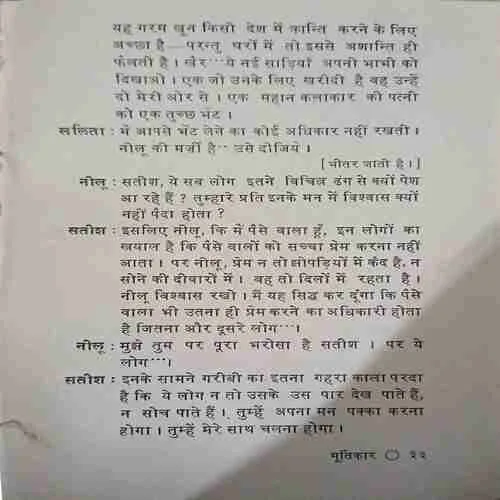 यह गरम खून किसी देश में क्रान्ति करने के लिए
अच्छा है—परन्तु घरों में तो इससे अशान्ति ही
फैलती है । खैर···ये नई साड़ियाँ अपनी भाभी को
दिखाओ । एक जो उनके लिए खरीदी है वह उन्हें
दो मेरी ओर से । एक महान कलाकार की पत्नी
को एक तुच्छ भेंट ।
ललिता : में आपसे भेंट लेने का कोई अधिकार नहीं रखती ।
नीलू की मर्ज़ी है··· उसे दीजिये ।
[भीतर जाती है।]
नीलू : सतीश, ये सब लोग इतने विचित्र ढंग से क्यों पेश
आ रहे हैं ? तुम्हारे प्रति इनके मन में विश्वास क्यों
नहीं पैदा होता ?
सतीश : इसलिए नीलू, कि में पैसे वाला हूँ, इन लोगों का
खयाल है कि पैसे वालों को सच्चा प्रेम करना नहीं
आता । पर नीलू, प्रेम न तो झोपड़ियों में कैद है, न
सोने की दीवारों में । वह तो दिलों में रहता है ।
नीलू विश्वास रखो । में यह सिद्ध कर दूंगा कि पैसे
वाला भी उतना ही प्रेम करने का अधिकारी होता
है जितना और दूसरे लोग···।
नीलू : मुझे तुम पर पूरा भरोसा है सतीश । पर ये
लोग···।
सतीश : इनके सामने गरीबी का इतना गहरा काला परदा
है कि ये लोग न तो उसके उस पार देख पाते हैं,
न सोच पाते हैं । तुम्हें अपना मन पक्का करना
होगा । तुम्हें मेरे साथ चलना होगा ।
मूर्तिकार ○ २२